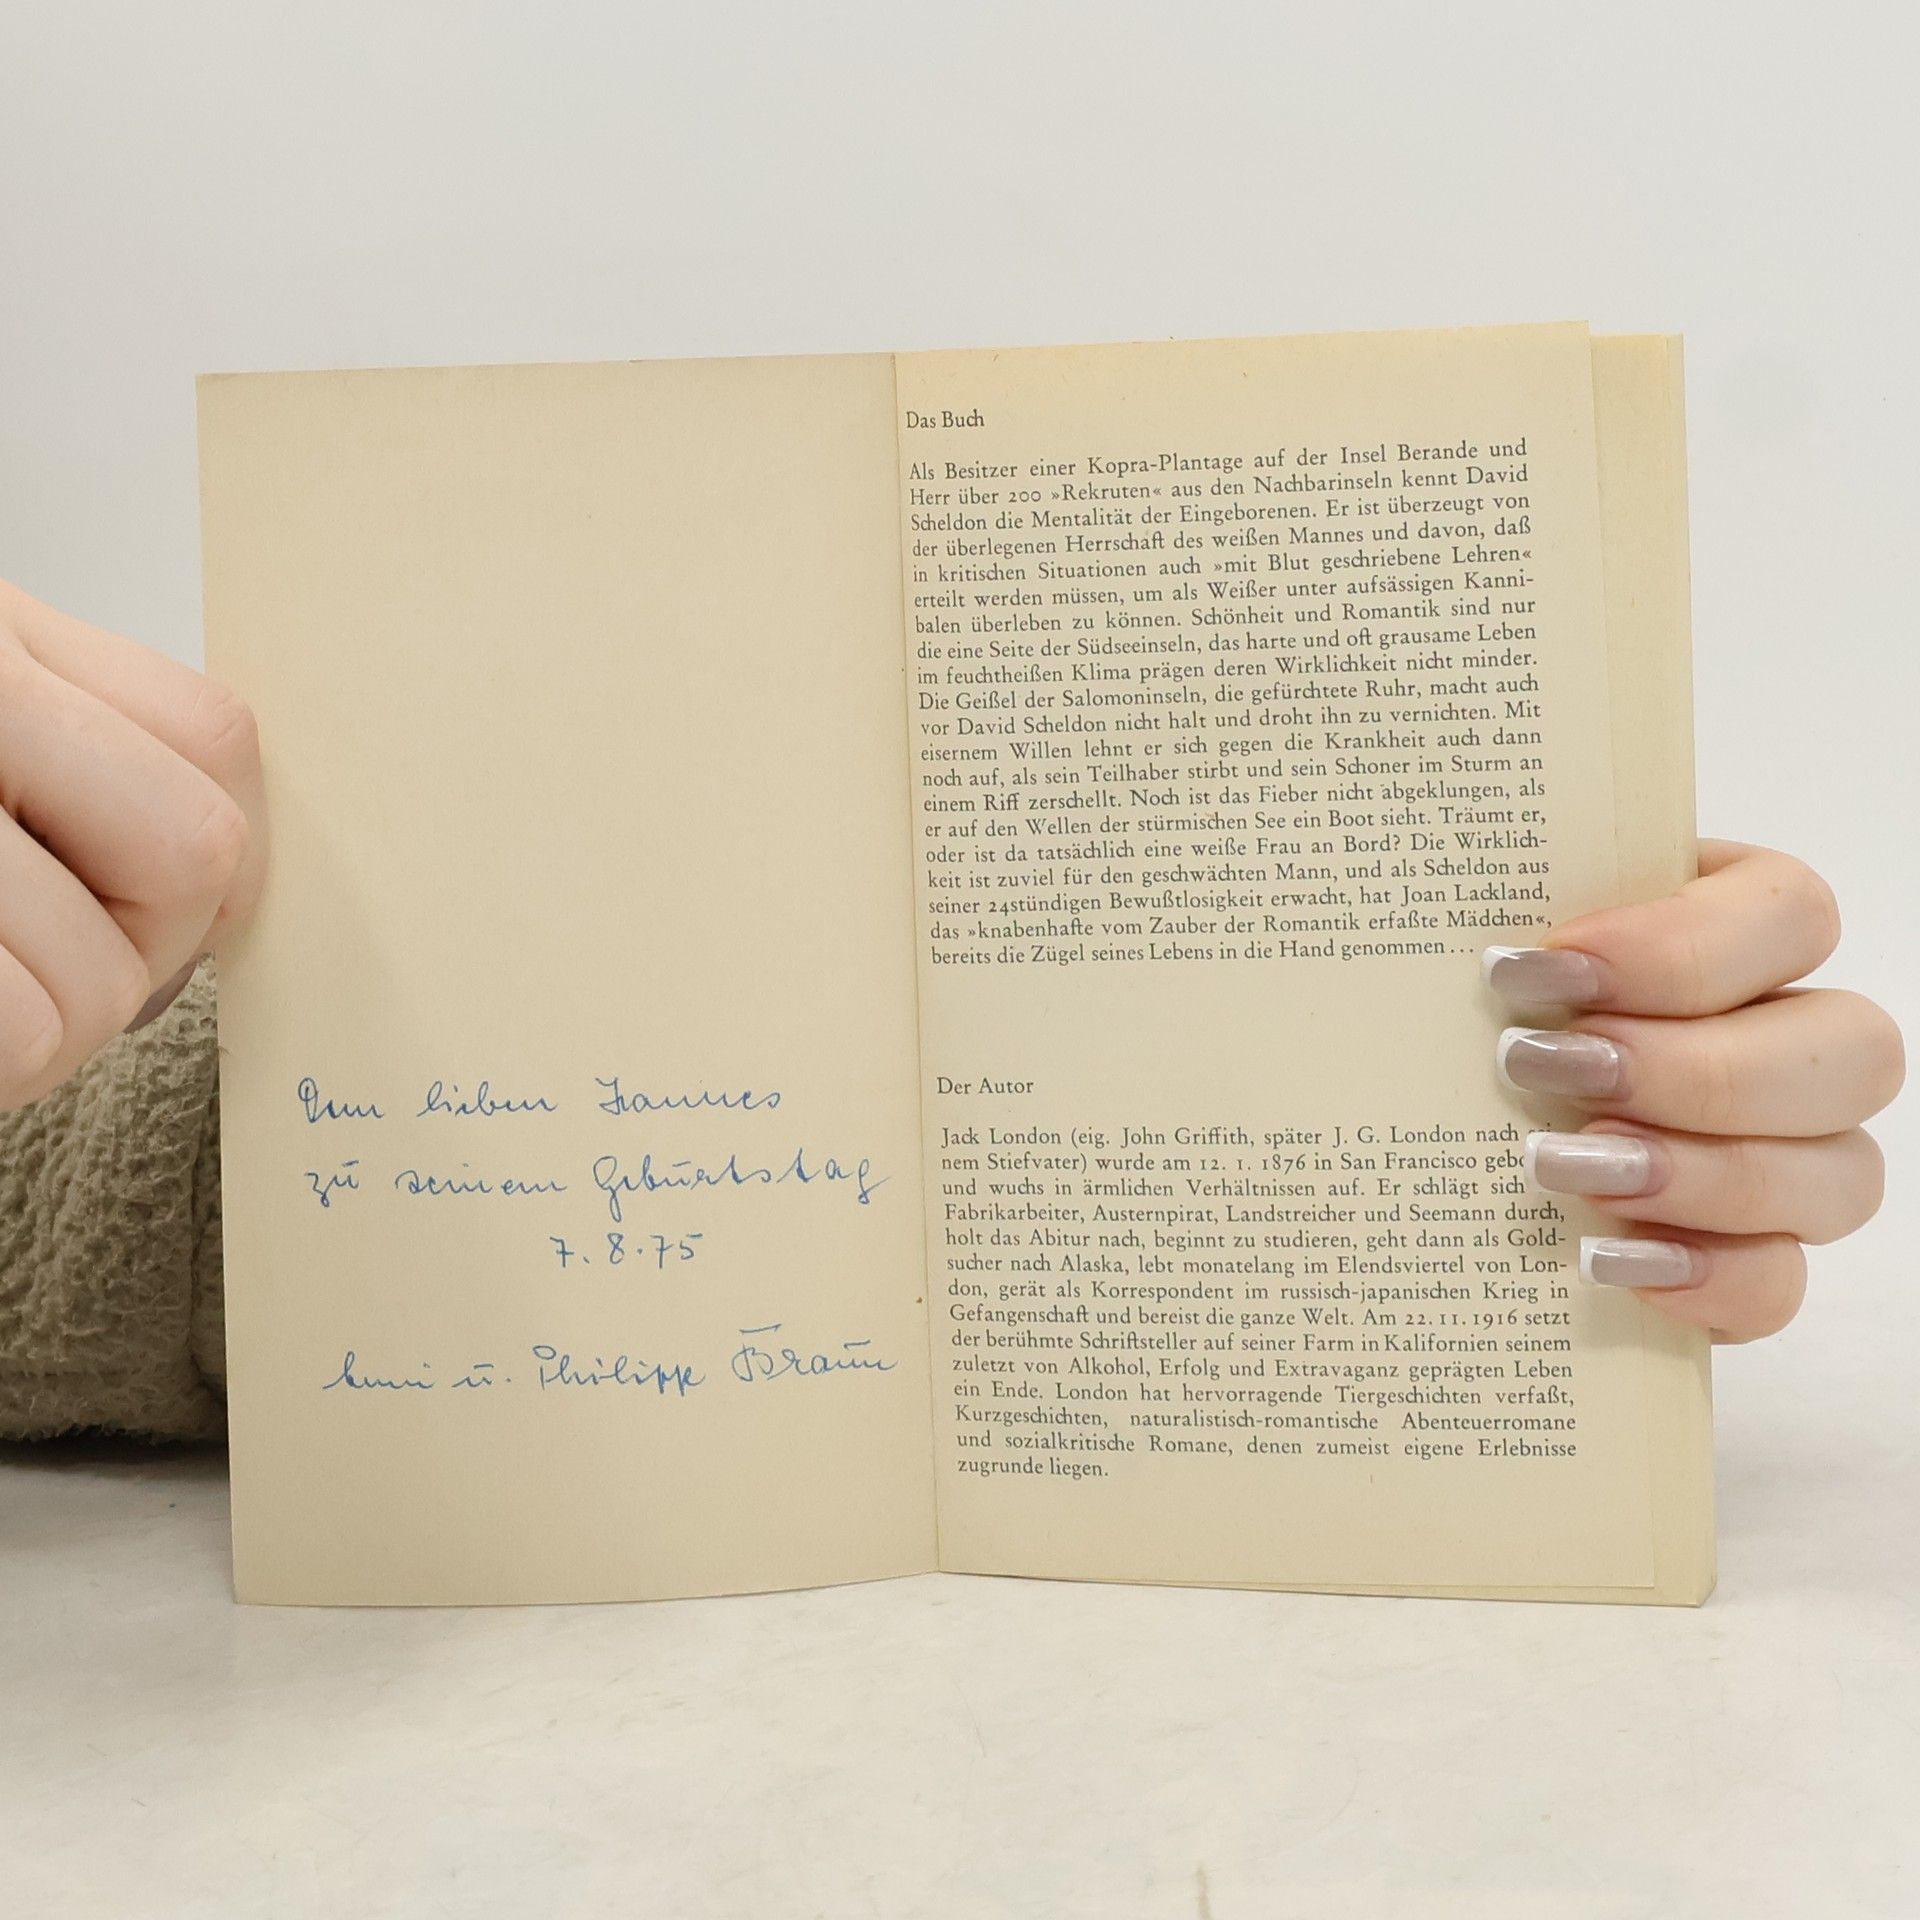 Dem lieben Hannes
zu seinem Geburtstag
7.8.75
u. Philipp Braun
Das Buch
Als Besitzer einer Kopra-Plantage auf der Insel Berande und
Herr über 200 »Rekruten« aus den Nachbarinseln kennt David
Scheldon die Mentalität der Eingeborenen. Er ist überzeugt von
der überlegenen Herrschaft des weißen Mannes und davon, daß
in kritischen Situationen auch »mit Blut geschriebene Lehren«
erteilt werden müssen, um als Weißer unter aufsässigen Kanni-
balen überleben zu können. Schönheit und Romantik sind nur
die eine Seite der Südseeinseln, das harte und oft grausame Leben
im feuchtheißen Klima prägen deren Wirklichkeit nicht minder.
Die Geißel der Salomoninseln, die gefürchtete Ruhr, macht auch
vor David Scheldon nicht halt und droht ihn zu vernichten. Mit
eisernem Willen lehnt er sich gegen die Krankheit auch dann
noch auf, als sein Teilhaber stirbt und sein Schoner im Sturm an
einem Riff zerschellt. Noch ist das Fieber nicht abgeklungen, als
er auf den Wellen der stürmischen See ein Boot sieht. Träumt er,
oder ist da tatsächlich eine weiße Frau an Bord? Die Wirklich-
keit ist zuviel für den geschwächten Mann, und als Scheldon aus
seiner 24stündigen Bewußtlosigkeit erwacht, hat Joan Lackland,
das »knabenhafte vom Zauber der Romantik erfaßte Mädchen«,
bereits die Zügel seines Lebens in die Hand genommen...
Der Autor
Jack London (eig. John Griffith, später J. G. London nach
nem Stiefvater) wurde am 12. 1. 1876 in San Francisco gebo
und wuchs in ärmlichen Verhältnissen auf. Er schlägt sich
Fabrikarbeiter, Austernpirat, Landstreicher und Seemann durch,
holt das Abitur nach, beginnt zu studieren, geht dann als Gold-
sucher nach Alaska, lebt monatelang im Elendsviertel von Lon-
don, gerät als Korrespondent im russisch-japanischen Krieg in
Gefangenschaft und bereist die ganze Welt. Am 22. 11. 1916 setzt
der berühmte Schriftsteller auf seiner Farm in Kalifornien seinem
zuletzt von Alkohol, Erfolg und Extravaganz geprägten Leben
ein Ende. London hat hervorragende Tiergeschichten verfaßt,
Kurzgeschichten, naturalistisch-romantische Abenteuerromane
und sozialkritische Romane, denen zumeist eigene Erlebnisse
zugrunde liegen.